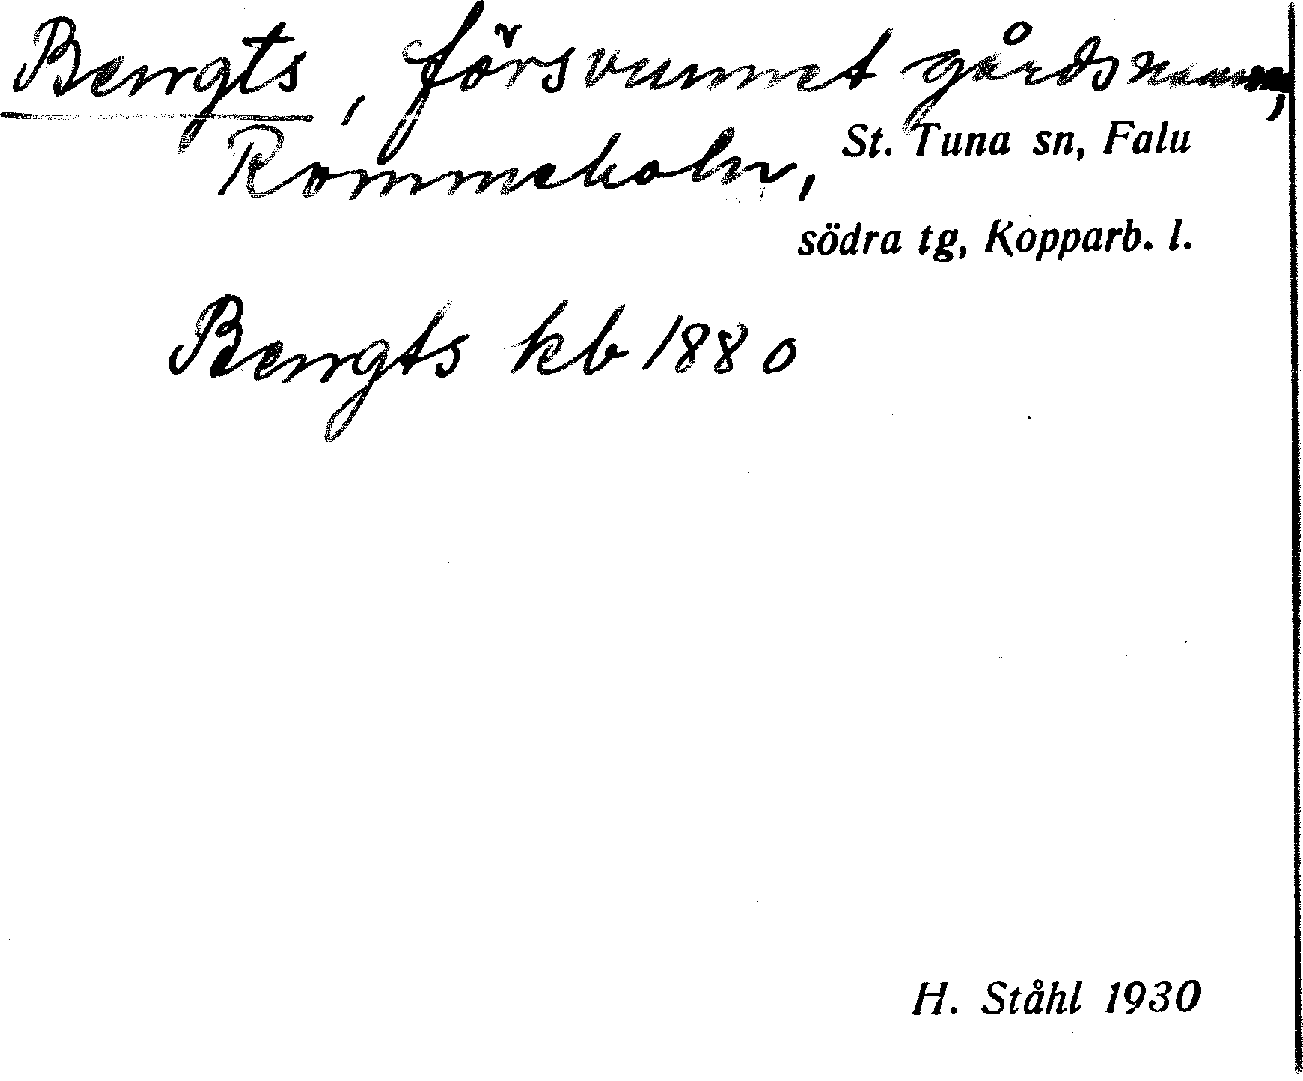 Bengts, försvunnet gårdsnamn,
Rommeholn, St. Tuna sn, Falu
södra tg, Kopparb. l.
Bengts kb 1880
H. Ståhl 1930